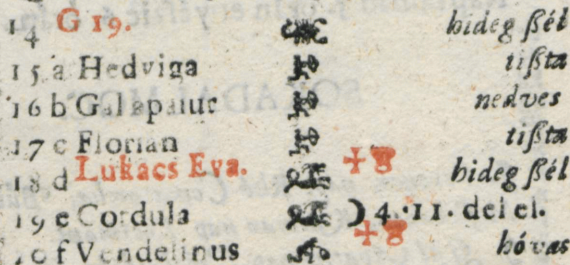 14 G 19. hideg ßél
15 a Hedviga tißta
16 b Gal apaiur nedves
17 c Florian tißta
18 d Lukacs Eva. hideg ßél
19 e Cordula ☽ 4. 11. del el.
20 f Vendelinus hóvas